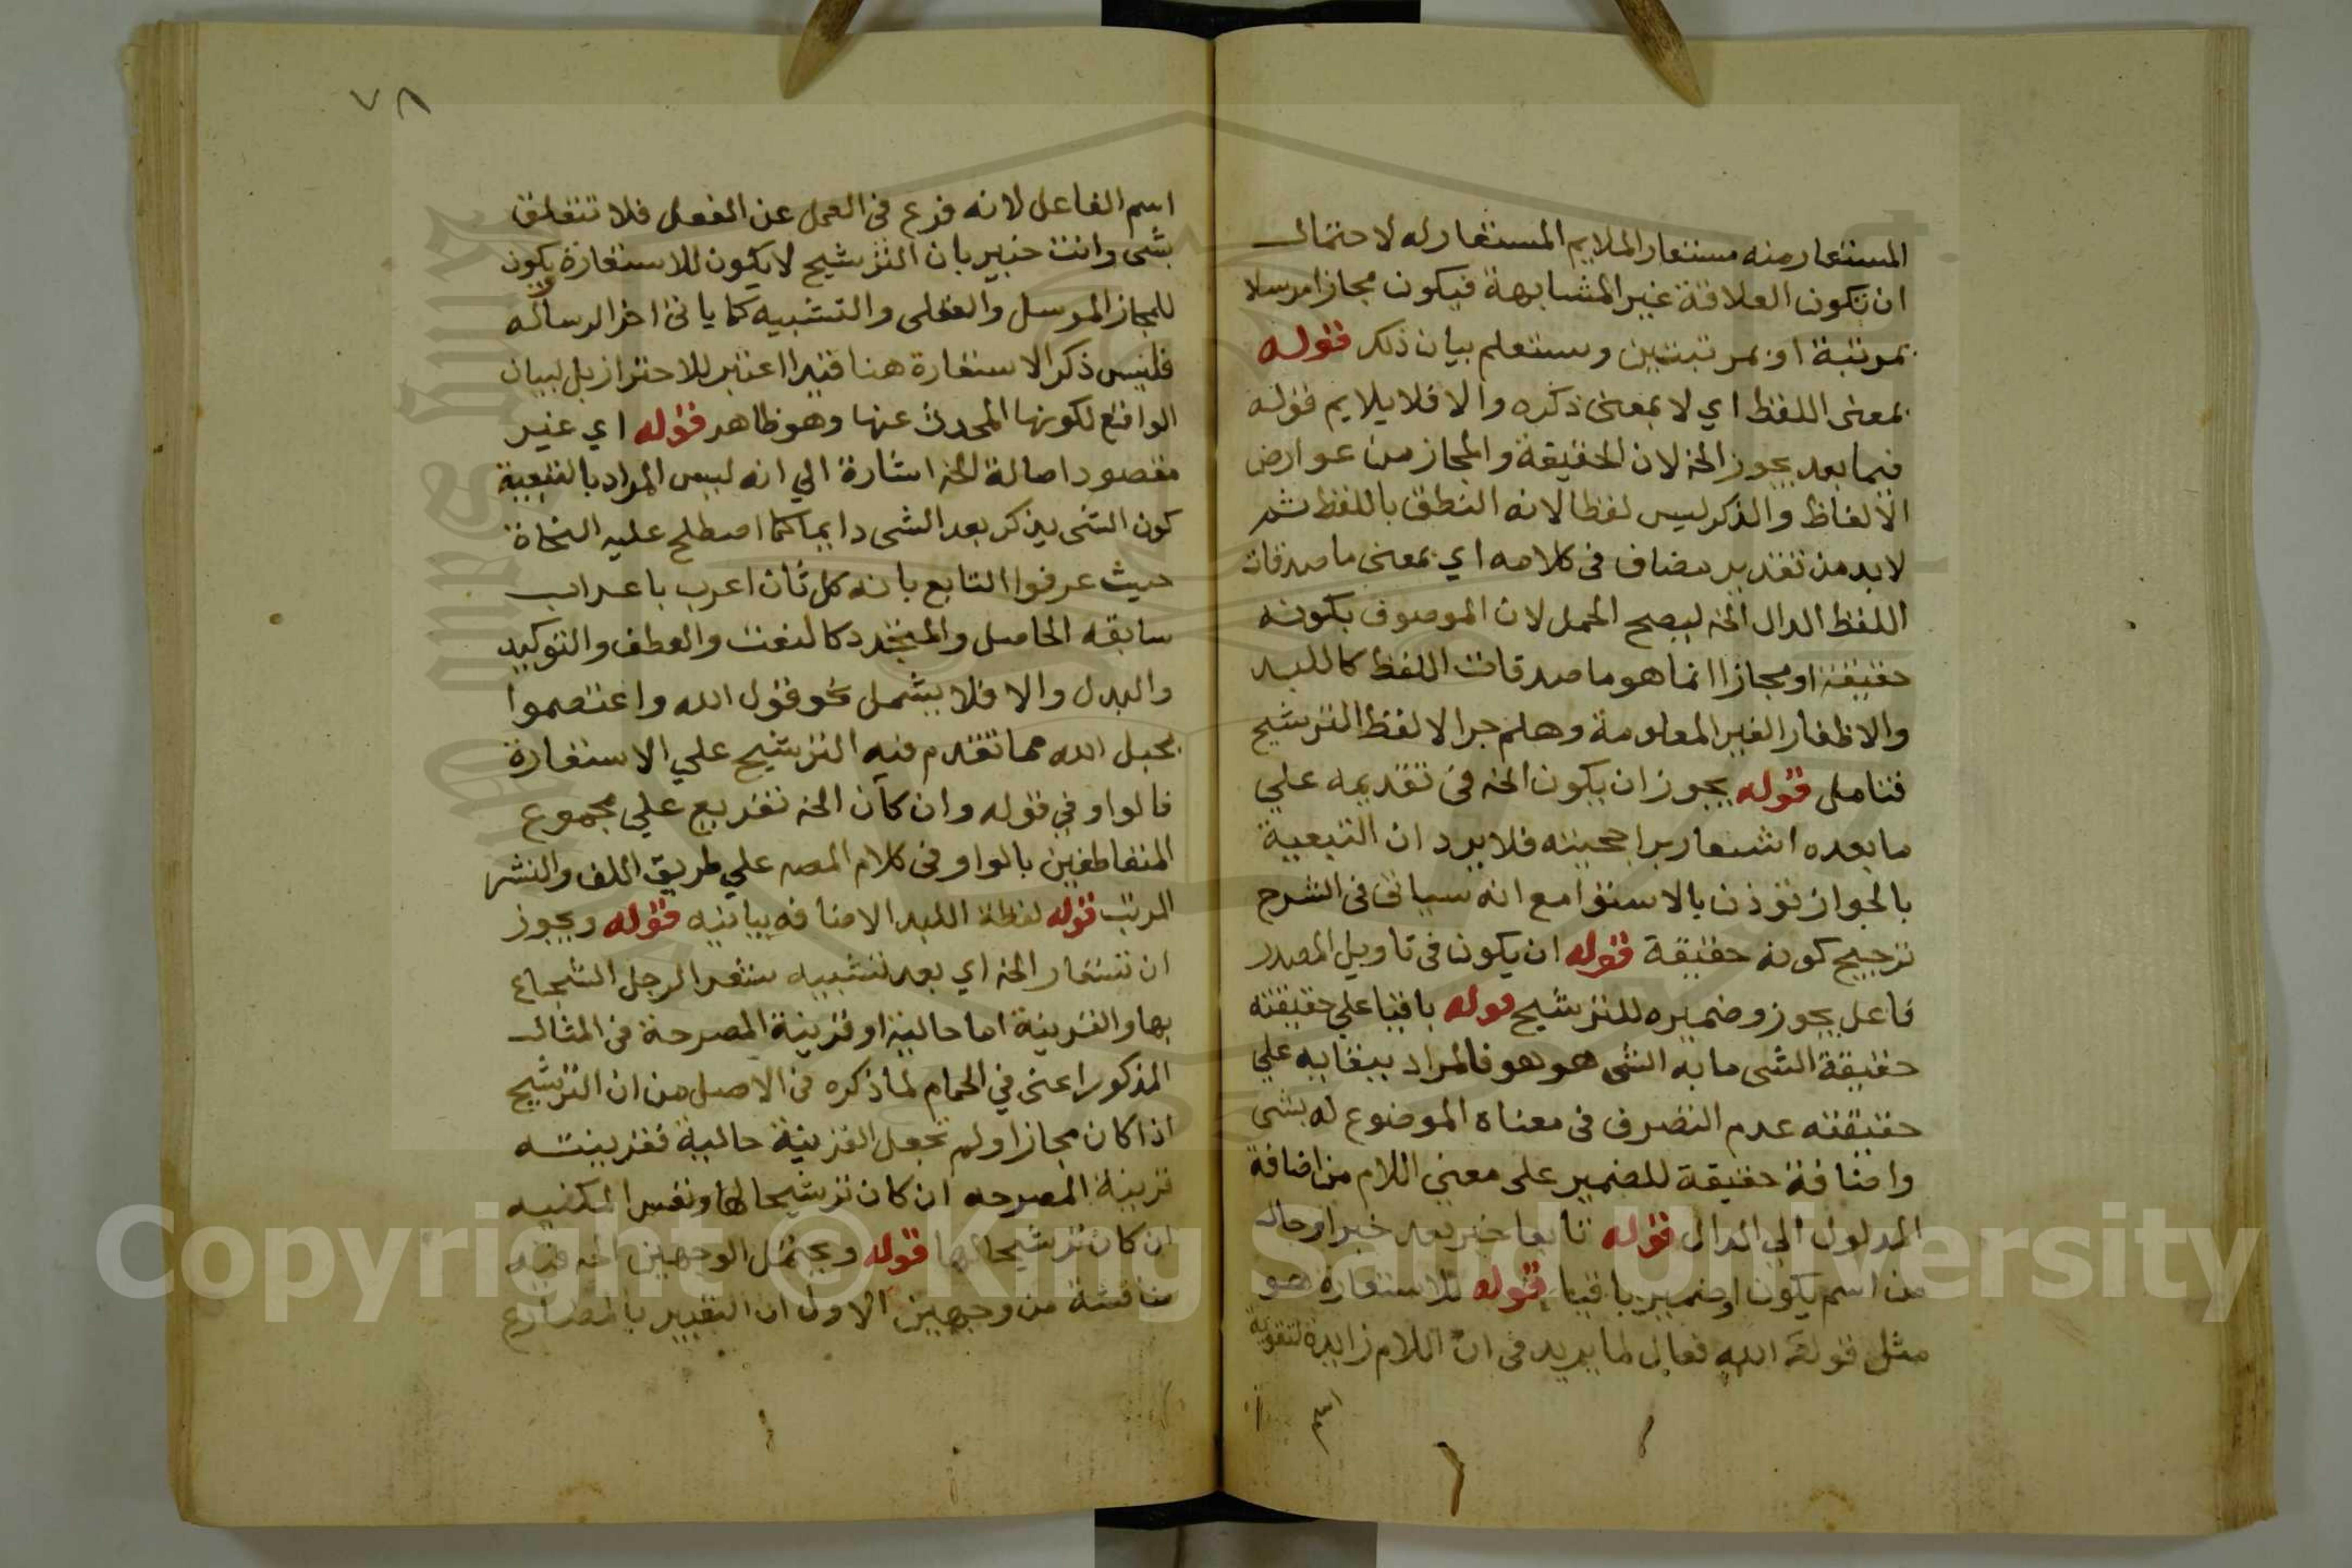 المستعار منه مستعار الملايم المستعار له لاحتمال
ان تكون العلاقة غير المشابهة فيكون مجازا مرسلا
بمرتبة او بمرتبتين وستعلم بيان ذلك قوله
بمعنى اللفظ اي لا بمعنى ذكره والا فلا يلايم قوله
فيما بعد يجوز الخ لان الحقيقة والمجاز من عوارض
الالفاظ والذكر ليس لفظا لانه النطق باللفظ ثم
لا بد من تقدير مضاف في كلامه اي بمعنى ما صدقات
اللفظ الدال الخ ليصح الحمل لان الموصوف بكونه
حقيقة او مجازا انما هو ما صدقات اللفظ كاللبد
والاظفار الغير المعلومة وهلم جرا لا لفظ الترشيح
فتامل قوله يجوز ان يكون الخ في تقديمه علي
ما بعده اشعار براجحيته فلا يرد ان التبعية
بالجواز توذن بالاستوا مع انه سياتى فى الشرح
ترجيح كونه حقيقة قوله ان يكون فى تاويل المصدر
فاعل يجوز وضميره للترشيح قوله باقيا علي حقيقته
حقيقة الشى ما به الشى هو هو فالمراد ببقايه علي
حقيقته عدم التصرف فى معناه الموضوع له بشى
واضافة حقيقة للضمير على معنى اللام من اضافة
المدلول الي الدال قوله تابعا خبر بعد خبر او حال
من اسم يكون او ضمير باقيا قوله للاستعارة هو
مثل قوله الله فعال لما يريد فى ان اللام زايدة لتقوية
٧٨
اسم الفاعل لانه فرع فى العمل عن الفعل فلا تتعلق
بشى وانت خبير بان الترشيح لا يكون للاستعارة يكون
للمجاز المرسل والعقلى والتشبيه كما ياتى اخر الرساله
فليس ذكر الاستعارة هنا قيدا اعتبر للاحتراز بل لبيان
الواقع لكونها المحدث عنها وهو ظاهر قوله اي غير
مقصود اصالة الخ اشارة الي انه ليس المراد بالتبعية
كون الشى يذكر بعد الشى دايما كما اصطلح عليه النحاة
حيث عرفوا التابع بانه كل ثان اعرب باعراب
سابقه الحاصل والمتجدد كالنعت والعطف والتوكيد
والبدل والا فلا يشمل نحو قول الله واعتصموا
بحبل الله مما تقدم فيه الترشيح علي الاستعارة
فالواو في قوله وان كان الخ تفريع علي مجموع
المتعاطفين بالواو فى كلام المصه علي طريق اللف والنشر
المرتب قوله لفظة اللبد الاضافه بيانيه قوله ويجوز
ان تستعار الخ اي بعد تشبيه شعر الرجل الشجاع
بها والقرينة اما حالية او قرينة المصرحة فى المثال
المذكور اعنى في الحمام لما ذكره فى الاصل من ان الترشيح
اذا كان مجازا ولم تجعل القرينة حالية فقرينته
قرينة المصرحه ان كان ترشيحا لها ونفس المكنيه
ان كان ترشيحا لها قوله ويحتمل الوجهين الخ فيه
مناقشة من وجهين الاول ان التعبير بالمضارع
Copyright © King Saud University